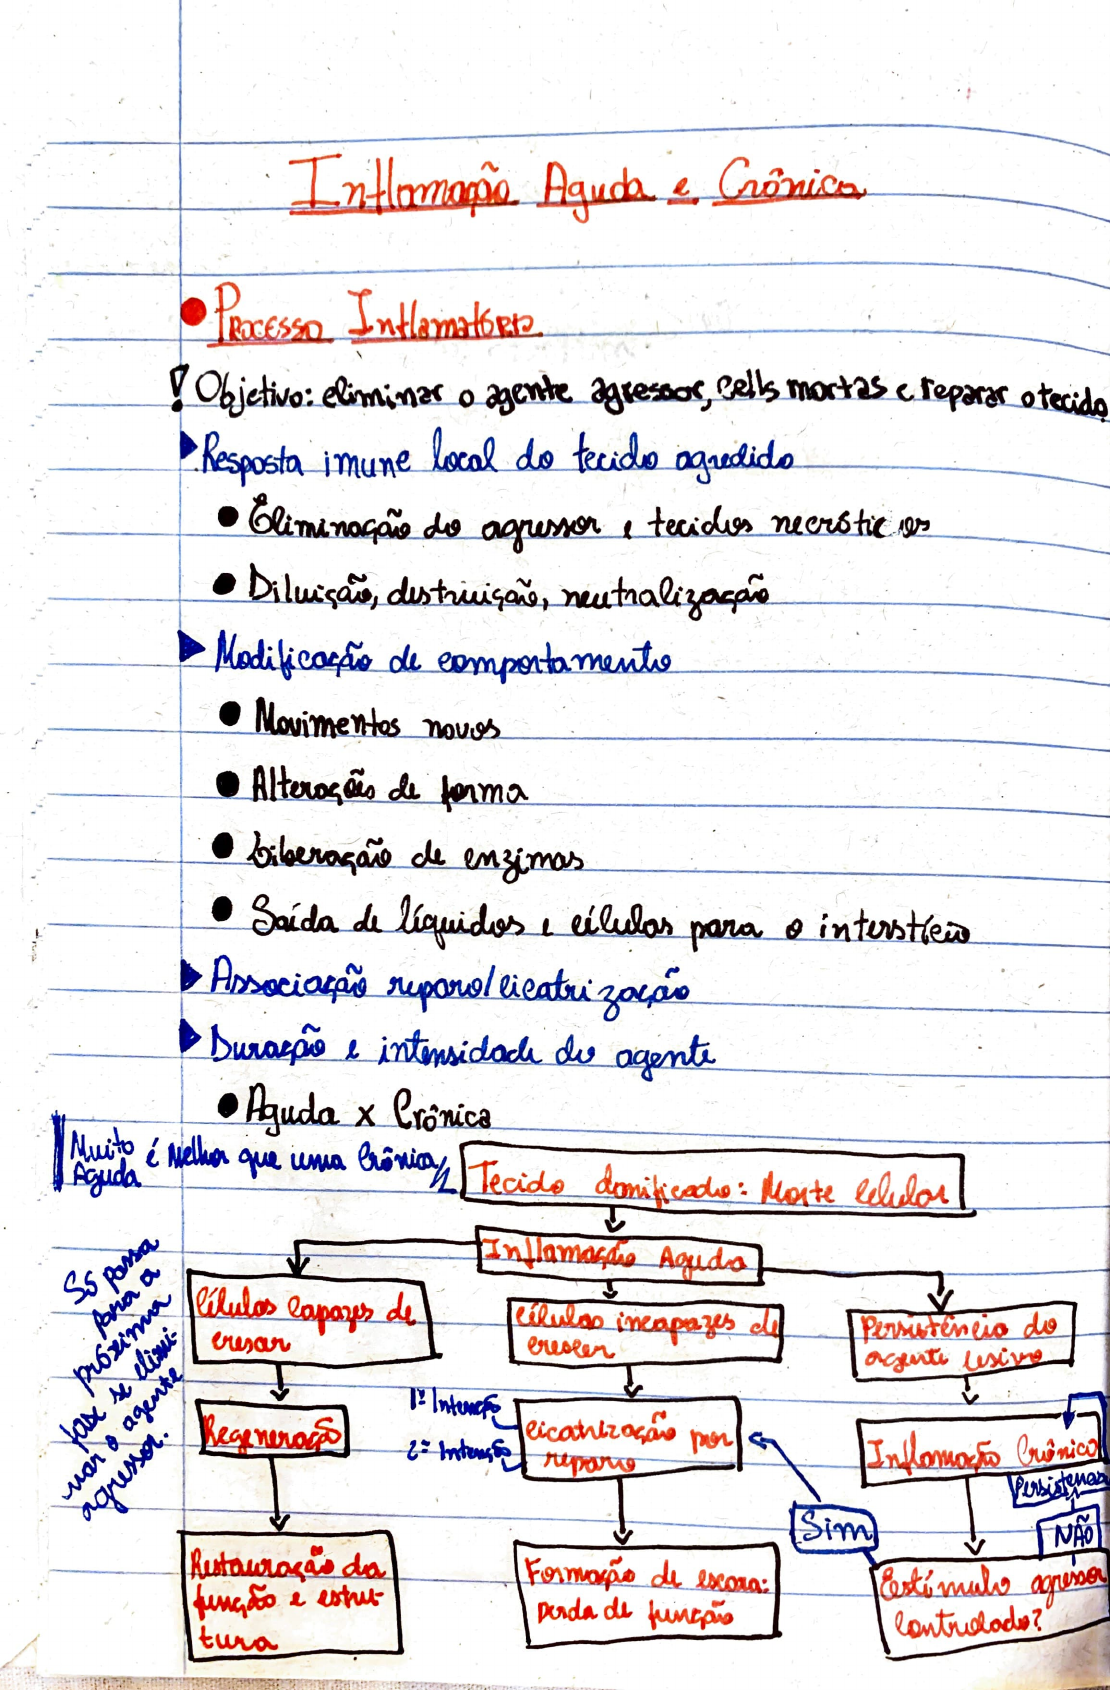 Inflamação Aguda e Crônica
Processo Inflamatório
! Objetivo: eliminar o agente agressor, cells mortas e reparar o tecido
Resposta imune local do tecido agredido
Eliminação do agressor e tecidos necróticos
Diluição, destruição, neutralização
Modificação de comportamento
Movimentos novos
Alterações de forma
Liberação de enzimas
Saída de líquidos e células para o interstício
Associação reparo/cicatrização
Duração e intensidade do agente
Aguda x Crônica
Muito Aguda é Melhor que uma Crônica
Tecido danificado: Morte Celular
Inflamação Aguda
Só passa
para a
próxima
fase se elimi-
nar o agente
agressor.
Células capazes de
cresar
Células incapazes de
crescer
Persistência do
agente lesivo
Regeneração
1ª Intenção
2ª Intenção
Cicatrização por
reparo
Inflamação Crônica
Persistencia
Sim
NÃO
Restauração da
função e estru-
tura
Formação de escara:
perda de função
Estímulo agressor
Controlado?